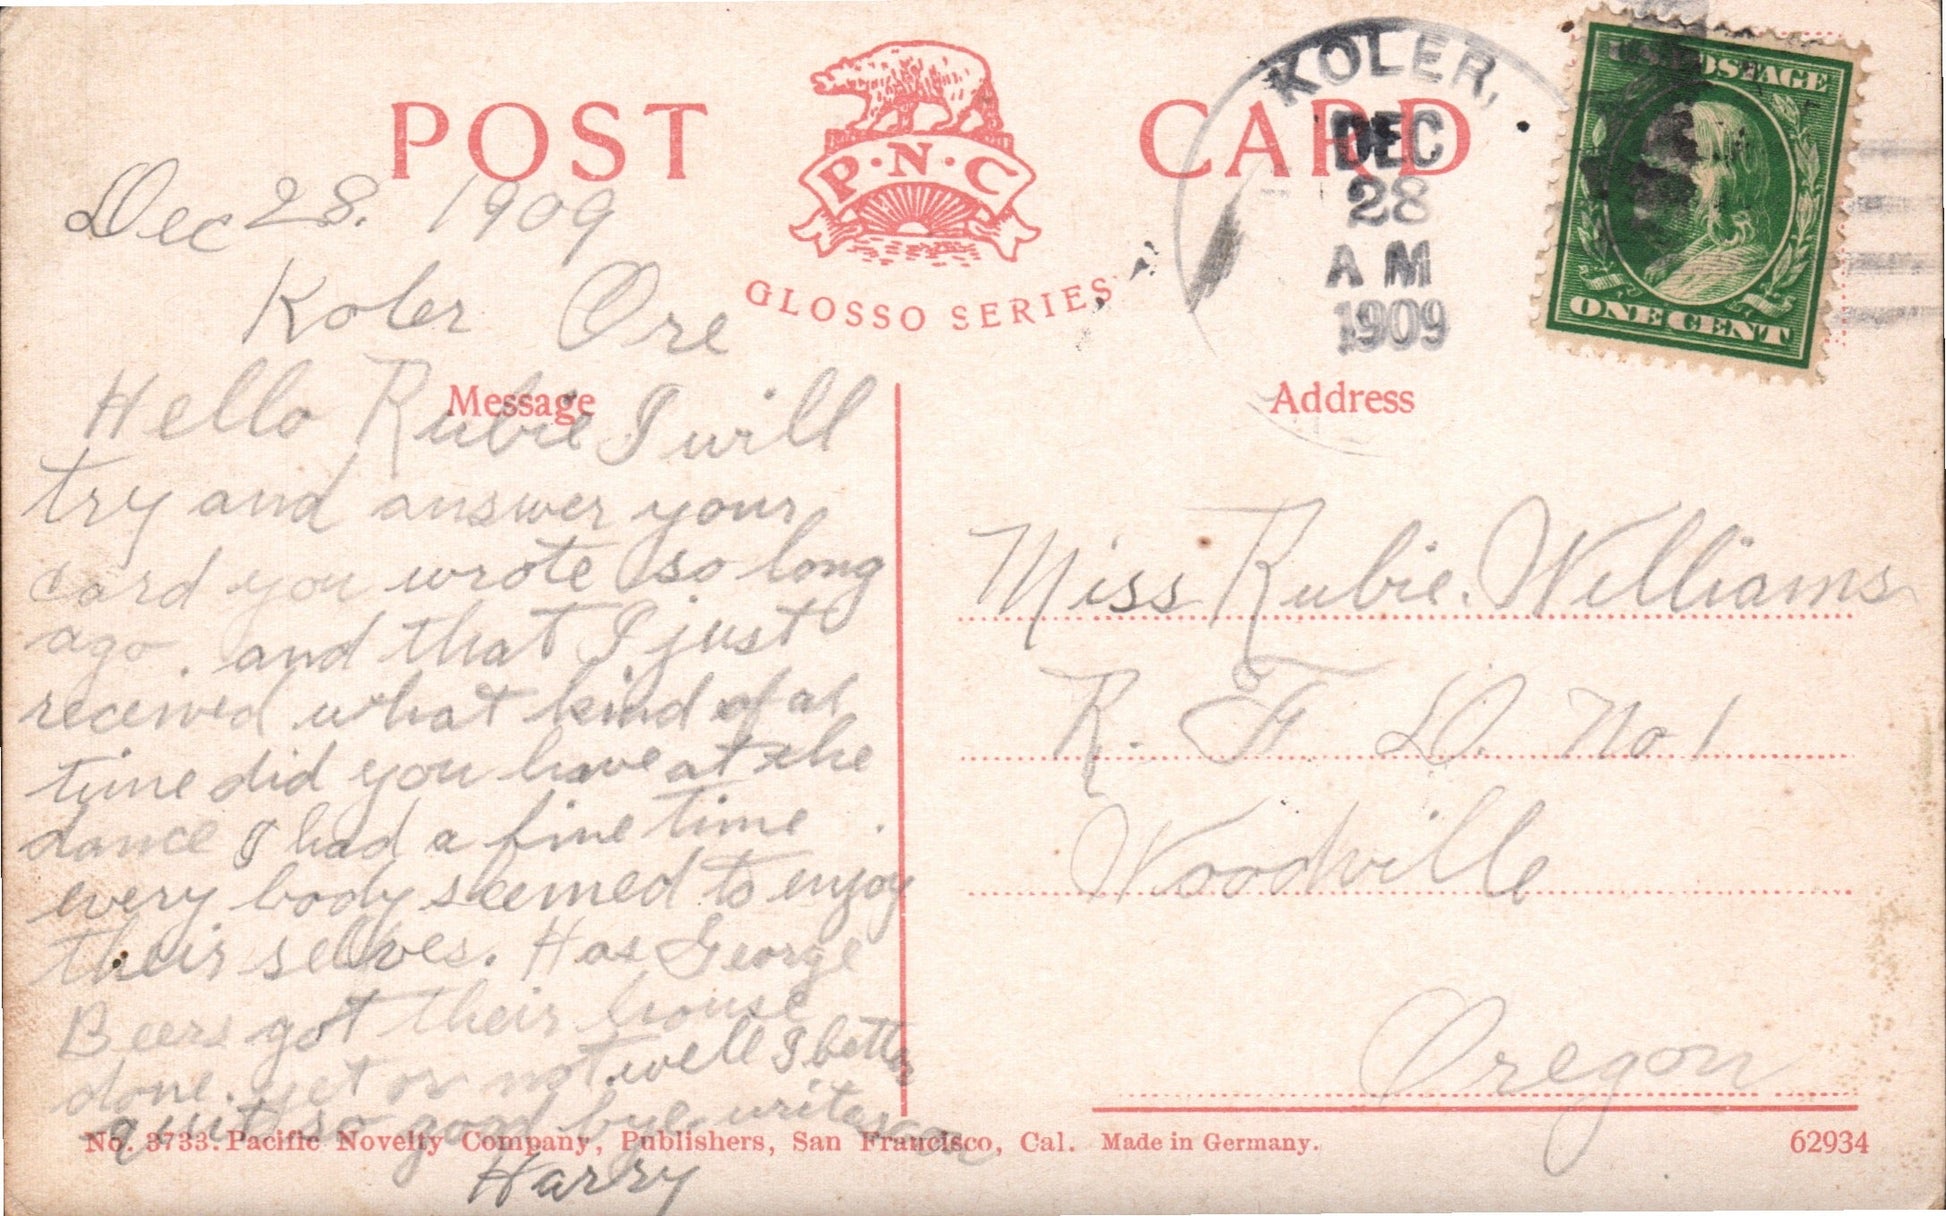 POST CARD
P·N·C
GLOSSO SERIES
KOLER,
DEC
28
A M
1909
U.S. POSTAGE
ONE CENT
Dec 28. 1909
Koler Ore
Message
Hello Rubie I will
try and answer your
card you wrote so long
ago. and that I just
received what kind of a
time did you have at the
dance I had a fine time
every body seemed to enjoy
their selves. Has George
Beers got their house
done. yet or not. well I better
quit so good bye write soon
Harry
Address
Miss Rubie. Williams
R. F. D. No 1
Woodville
Oregon
No. 3733. Pacific Novelty Company, Publishers, San Francisco, Cal. Made in Germany.
62934